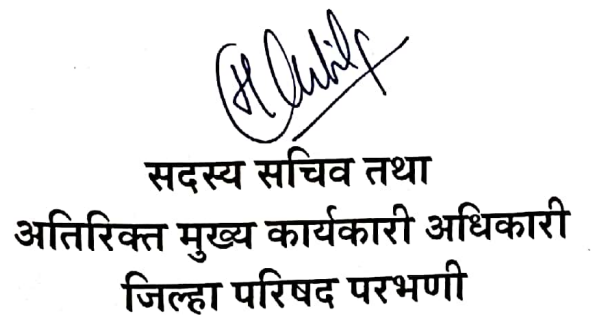 सदस्य सचिव तथा
अतिरिक्त मुख्य कार्यकारी अधिकारी
जिल्हा परिषद परभणी